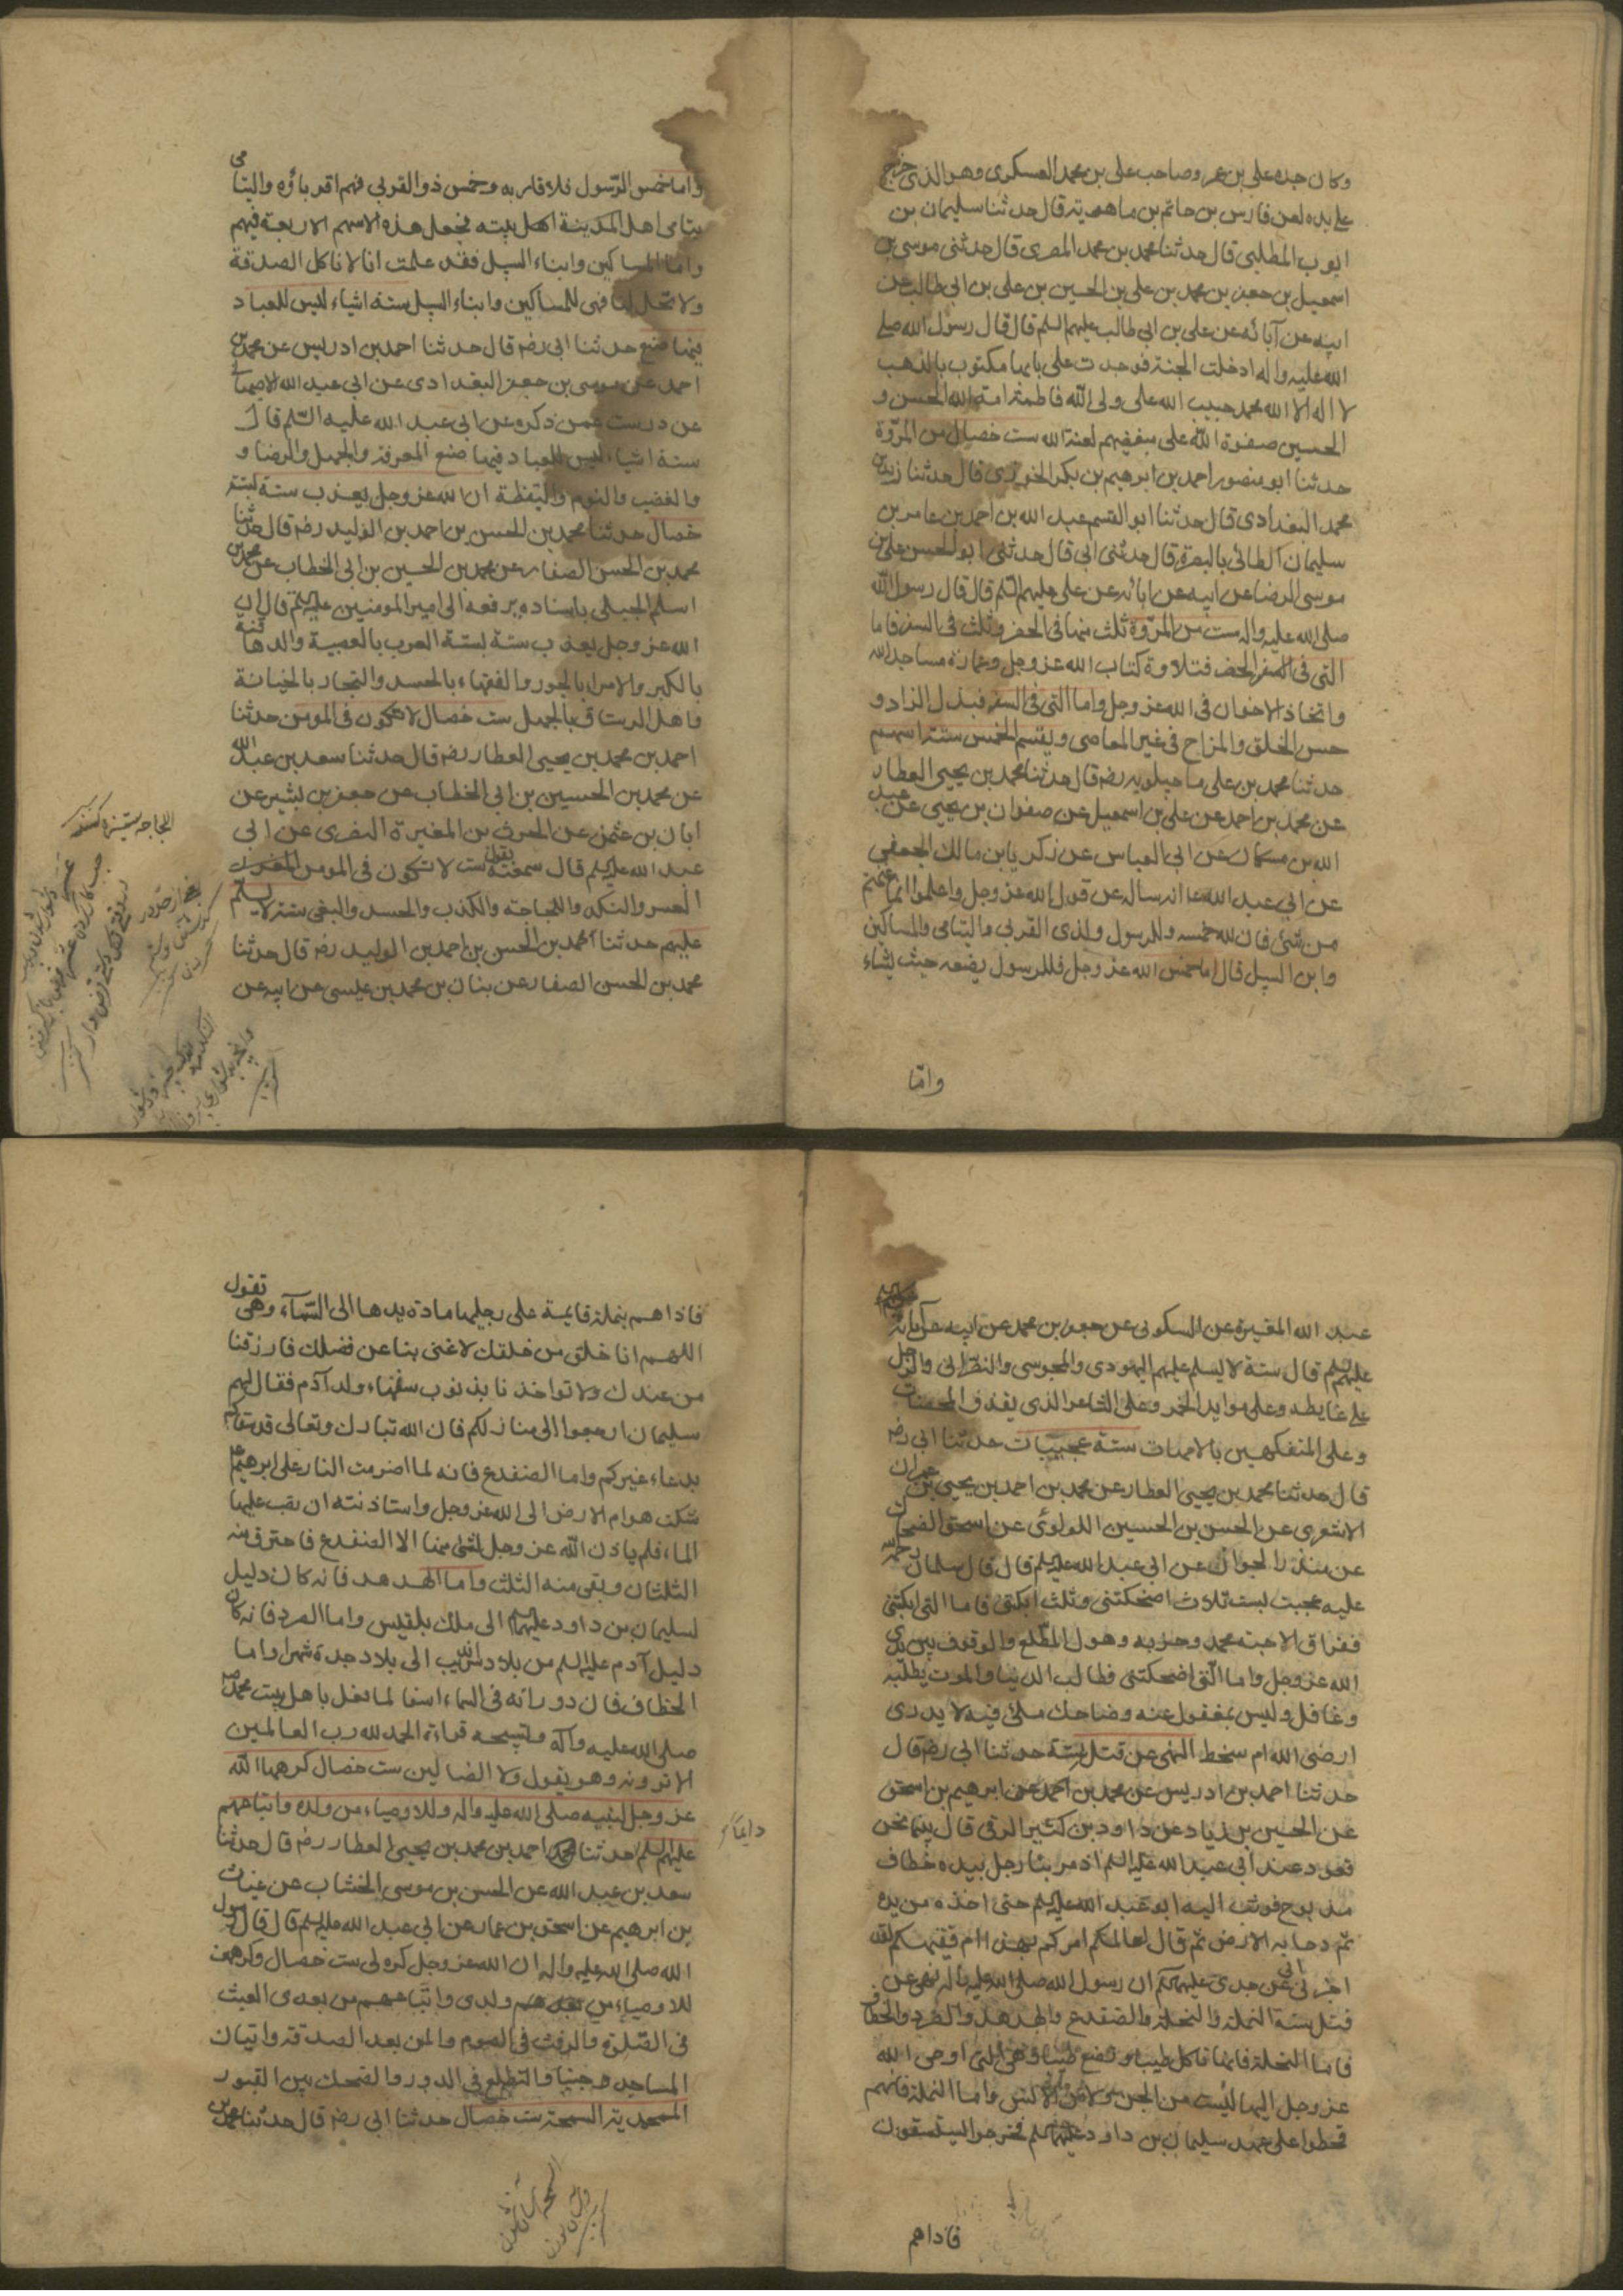 وكان جده علي بن عمر وصاحب علي بن محمد العسكرى وهو الذى خرج
على يده لعن فارس بن حاتم بن ماهويه قال حدثنا سليمان بن
ايوب المطلبى قال حدثنا محمد بن محمد المصرى قال حدثنى موسى بن
اسمعيل بن جعفر بن محمد بن على بن الحسين بن على بن ابى طالب عن
ابيه عن آبائه عن على بن ابى طالب عليهم السلم قال قال رسول الله صلى
الله عليه واله ادخلت الجنة فوجدت على بابها مكتوب بالذهب
لا اله الا الله محمد حبيب الله على ولى الله فاطمة امة الله الحسن و
الحسين صفوة الله على مبغضيهم لعنة الله ست خصال من المروة
حدثنا ابو منصور احمد بن ابرهيم بن بكر الخوزى قال حدثنا زيد بن
محمد البغدادى قال حدثنا ابو القسم عبد الله بن احمد بن عامر بن
سليمان الطائى بالبصرة قال حدثنى ابى قال حدثنى ابو الحسن على بن
موسى الرضا عن ابيه عن ابائه عن على عليهم السلم قال قال رسول الله
صلى الله عليه واله ست من المروة ثلث منها فى الحضر وثلث فى السفر فاما
التى فى الحضر فتلاوة كتاب الله عز وجل وعمارة مساجد الله
واتخاذ الاخوان فى الله عز وجل واما التى فى السفر فبذل الزاد و
حسن الخلق والمزاح فى غير المعاصى ويقسم الخمس ستة اسهم
حدثنا محمد بن على ماجيلويه رضه قال حدثنا محمد بن يحيى العطار
عن محمد بن احمد عن على بن اسمعيل عن صفوان بن يحيى عن عبد
الله بن مسكان عن ابى العباس عن زكريا بن مالك الجعفى
عن ابى عبد الله ع انه ساله عن قول الله عز وجل واعلموا انما غنمتم
من شئ فان لله خمسه وللرسول ولذى القربى واليتامى والمساكين
وابن السبيل قال اما خمس الله عز وجل فللرسول يضعه حيث يشاء
واما
واما خمس الرسول فلاقاربه وخمس ذوالقربى فهم اقرباؤه واليتامى
يتامى اهل المدينة اهل بيته فجعل هذه الاسهم الاربعة فيهم
واما المساكين وابناء السبيل فقد علمت انا لا ناكل الصدقة
ولا تحل لنا فهى للمساكين وابناء السبيل ستة اشياء ليس للعباد
فيها صنع حدثنا ابى رضه قال حدثنا احمد بن ادريس عن محمد بن
احمد عن موسى بن جعفر البغدادى عن ابى عبد الله الاصبهانى
عن درست عمن ذكره عن ابى عبد الله عليه السلم قال
ستة اشياء ليس للعباد فيها صنع المعرفة والجهل والرضا و
والغضب والنوم واليقظة ان الله عز وجل يعذب ستة بستة
خصال حدثنا محمد بن الحسن بن احمد بن الوليد رضه قال حدثنا
محمد بن الحسن الصفار عن محمد بن الحسين بن ابى الخطاب عن محمد بن
اسلم الجبلى باسناده يرفعه الى امير المومنين عليه السلم قال ان
الله عز وجل يعذب ستة بستة العرب بالعصبية والدهاقنة
بالكبر والامراء بالجور والفقهاء بالحسد والتجار بالخيانة
واهل الرستاق بالجهل ست خصال لا تكون فى المومن حدثنا
احمد بن محمد بن يحيى العطار رضه قال حدثنا سعد بن عبد الله
عن محمد بن الحسين بن ابى الخطاب عن جعفر بن بشير عن
ابان بن عثمن عن الحرث بن المغيرة النضرى عن ابى
عبد الله عليه السلم قال سمعته يقول ست لا تكون فى المومن
العسر والنكد واللجاجة والكذب والحسد والبغى ستة لا يسلم
عليهم حدثنا محمد بن الحسن بن احمد بن الوليد رضه قال حدثنا
محمد بن الحسن الصفار عن بنان بن محمد بن عيسى عن ابيه عن
عبد الله المغيرة عن السكونى عن جعفر بن محمد عن ابيه عن آبائه
عليهم السلم قال ستة لا يسلم عليهم اليهودى والمجوسى والنصرانى والرجل
على غايطه وعلى موايد الخمر وعلى الشاعر الذى يقذف المحصنات
وعلى المتفكهين بالامهات ستة عجيبات حدثنا ابى رضه
قال حدثنا محمد بن يحيى العطار عن محمد بن احمد بن يحيى بن عمران
الاشعرى عن الحسن بن الحسين اللولوئى عن اسحق الضحاك
عن منذر الجوان عن ابى عبد الله عليه السلم قال قال سلمان رحمة الله
عليه عجبت بست ثلاث اضحكتنى وثلث ابكتنى فاما التى ابكتنى
ففراق الاحبة محمد وحزبه وهول المطلع والوقوف بين يدى
الله عز وجل واما التى اضحكتنى فطالب الدنيا والموت يطلبه
وغافل وليس بمغفول عنه وضاحك ملئ فيه لا يدرى
ارضى الله ام سخط النهى عن قتل ستة حدثنا ابى رضه قال
حدثنا احمد بن ادريس عن محمد بن احمد عن ابرهيم بن اسحق
عن الحسين بن زياد عن داود بن كثير الرقى قال بينما نحن
قعود عند ابى عبد الله عليه السلم اذ مر بنا رجل بيده خطاف
مذبوح فوثب اليه ابو عبد الله عليه السلم حتى اخذه من يده
ثم دحا به الارض ثم قال اعالمكم امركم بهذا ام فقيهكم لقد
اخبرنى ابى عن جدى عليهم السلم ان رسول الله صلى الله عليه واله نهى عن
قتل ستة النحلة والنملة والضفدع والهدهد والصرد والخطاف
فاما النحلة فانها تاكل طيبا وتضع طيبا وهى التى اوحى الله
عز وجل اليها ليست من الجن ولا من الانس واما النملة فانهم
قحطوا على عهد سليمان بن داود عليهما السلم فخرجوا يستسقون
فاذاهم
فاذا هم بنملة قايمة على رجليها مادة يدها الى السماء وهى تقول
اللهم انا خلق من خلقك لا غنى بنا عن فضلك فارزقنا
من عندك ولا تواخذنا بذنوب سفهاء ولد آدم فقال لهم
سليمان ارجعوا الى منازلكم فان الله تبارك وتعالى قد سقاكم
بدعاء غيركم واما الضفدع فانه لما اضرمت النار على ابرهيم
شكت هوام الارض الى الله عز وجل واستاذنته ان تصب عليها
الماء فلم ياذن الله عز وجل لشئ منها الا الضفدع فاحترق منه
الثلثان وبقى منه الثلث واما الهدهد فانه كان دليل
سليمان بن داود عليهما السلم الى ملك بلقيس واما الصرد فانه كان
دليل آدم عليه السلم من بلاد سرانديب الى بلاد جدة شهرا واما
الخطاف فان دورانه فى السماء اسفا لما فعل باهل بيت محمد
صلى الله عليه وآله وتسبيحه قراءة الحمد لله رب العالمين
الا ترونه وهو يقول ولا الضالين ست خصال كرهها الله
عز وجل لنبيه صلى الله عليه واله وللاوصياء من ولده واتباعهم
عليهم السلم حدثنا احمد بن محمد بن يحيى العطار رضه قال حدثنا
سعد بن عبد الله عن الحسن بن موسى الخشاب عن غياث
بن ابرهيم عن اسحق بن عمار عن ابى عبد الله عليه السلم قال قال رسول
الله صلى الله عليه واله ان الله عز وجل كره لى ست خصال وكرههن
للاوصياء من ولدى واتباعهم من بعدى العبث
فى الصلوة والرفث فى الصوم والمن بعد الصدقة واتيان
المساجد جنبا والتطلع فى الدور والضحك بين القبور
المحمدية السمحة ست خصال حدثنا ابى رضه قال حدثنا محمد بن